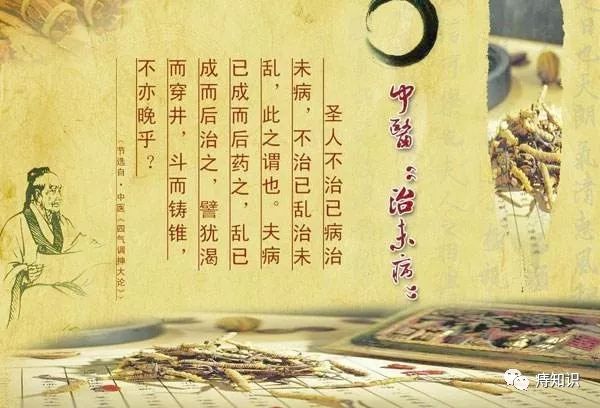 中醫“治未病”
圣人不治已病治
未病，不治已乱治未
乱，此之谓也。夫病
已成而后药之，乱已
成而后治之，譬犹渴
而穿井，斗而铸锥，
不亦晚乎？
（节选自·中医《四气调神大论》）
痔知识